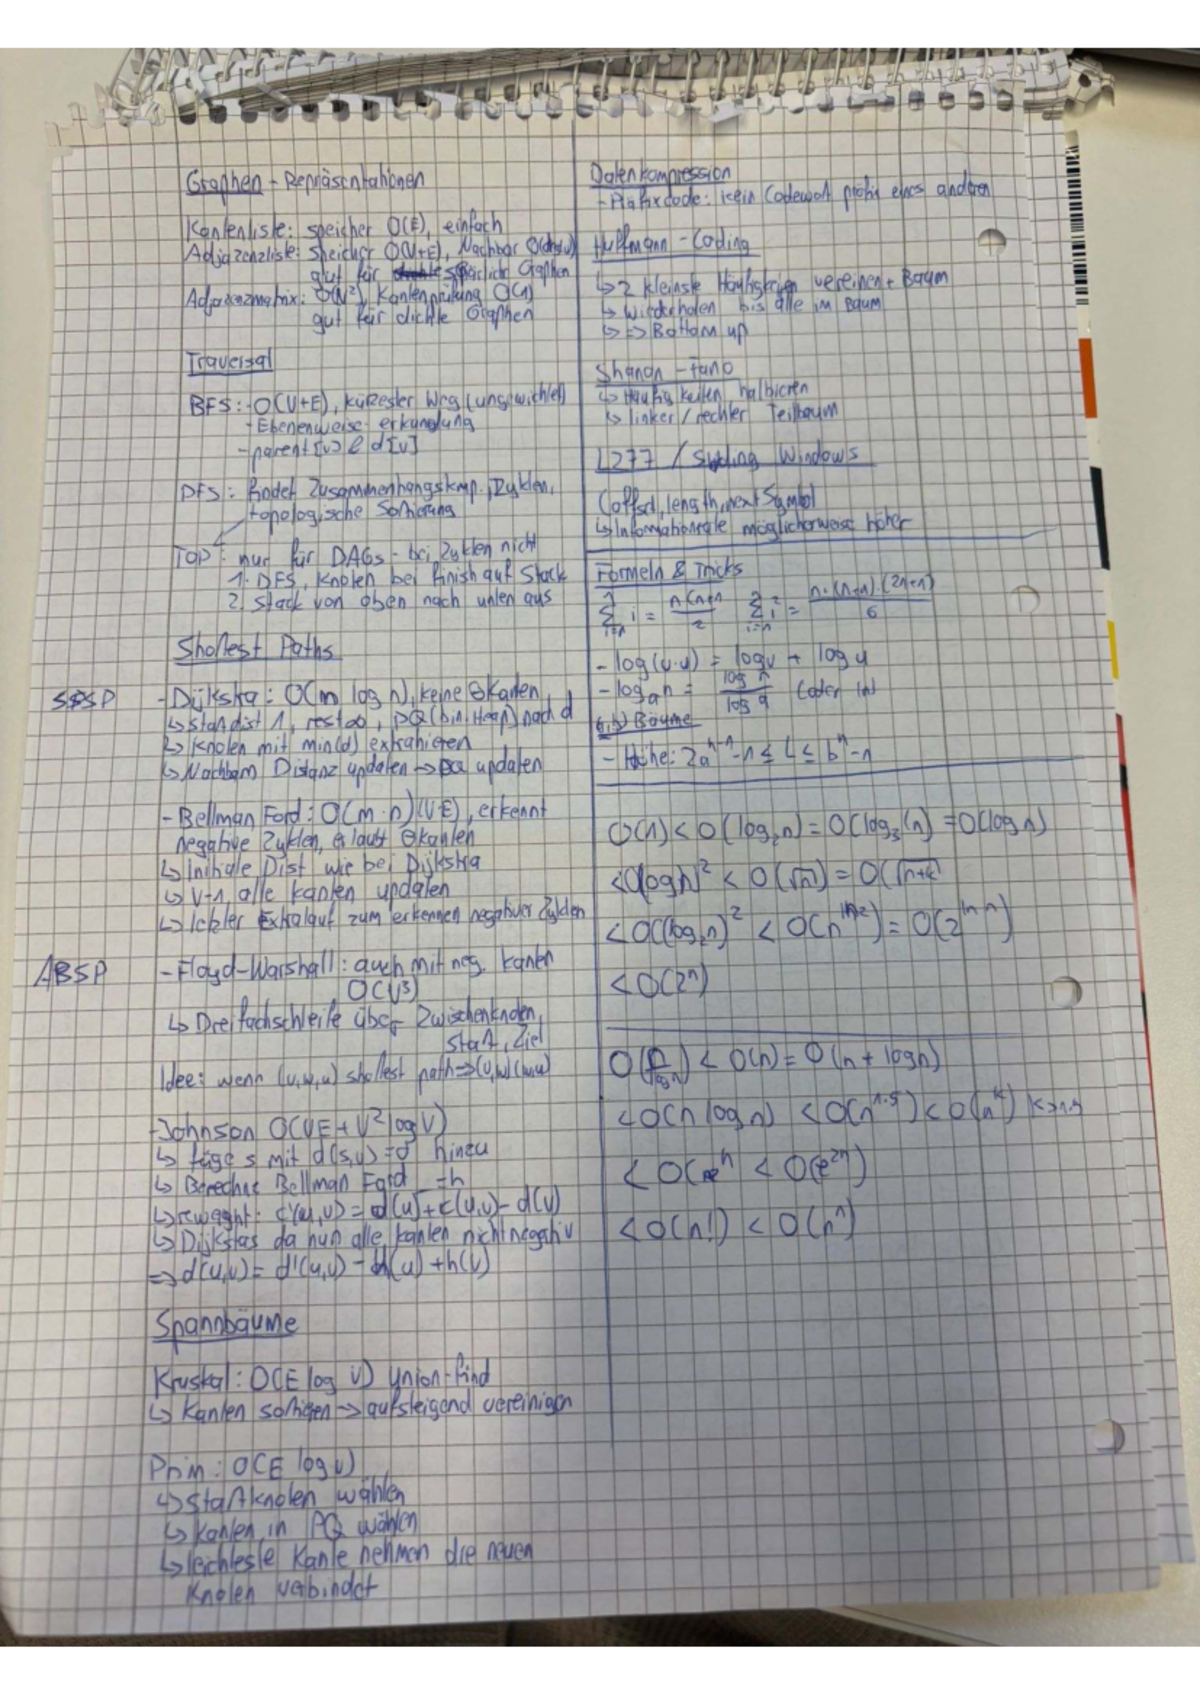 Graphen - Repräsentationen
Kantenliste: speicher O(E), einfach
Adjazenzliste: Speicher O(V+E), Nachbar
gut für spärliche Graphen
Adjazenzmatrix: O(V²), Kantenprüfung O(1)
gut für dichte Graphen
Traversal
BFS: - O(V+E), kürzester Weg (ungewichtet)
- Ebenenweise erkundung
- parent[v] & d[v]
DFS: findet Zusammenhangskmp., Zyklen,
topologische Sortierung
TOP: nur für DAGs - bei Zyklen nicht
1. DFS, Knoten bei Finish auf Stack
2. Stack von oben nach unten aus
Shortest Paths
SSSP
- Dijkstra: O(m log n), keine ⊖Kanten,
↳ start dist 1, rest ∞, PQ (bin. Heap) nach d
↳ Knoten mit min(d) extrahieren
↳ Nachbarn Distanz updaten → PQ updaten
- Bellman Ford: O(m·n) (VE), erkennt
negative Zyklen, erlaubt ⊖kanten
↳ initiale Dist wie bei Dijkstra
↳ V-1, alle kanten updaten
↳ letzter Extralauf zum erkennen negativer Zyklen
ABSP
- Floyd-Warshall: auch mit neg. kanten
O(V³)
↳ Dreifachschleife über Zwischenknoten,
start, Ziel
Idee: wenn (v,w,u) shortest path => (v,w) (w,u)
- Johnson O(VE + V² log V)
↳ füge s mit d(s,v) = 0 hinzu
↳ Berechne Bellman Ford = h
↳ reweight: c'(u,v) = d(u) + c(u,v) - d(v)
↳ Dijkstas da nun alle kanten nicht negativ
=> d(u,v) = d'(u,v) - h(u) + h(v)
Spannbäume
Kruskal: O(E log V) Union-Find
↳ Kanten sortieren → aufsteigend vereinigen
Prim: O(E log V)
↳ startknoten wählen
↳ kanten in PQ wählen
↳ leichteste Kante nehmen die neuen
Knoten verbindet
Datenkompression
- Präfixcode: kein Codewort präfix eines anderen
Huffmann - Coding
↳ 2 kleinste Häufigkeiten vereinen + Baum
↳ wiederholen bis alle im Baum
↳ => Bottom up
Shanon - Fano
↳ Häufigkeiten halbieren
↳ linker / rechter Teilbaum
LZ77 / Sliding Windows
(offset, length, next Symbol
↳ Informationsrate möglicherweise höher
Formeln & Tricks
∑ i = n(n+1)/2 ∑ i² = n·(n+1)·(2n+1)/6
- log(v·u) = log v + log u
- log_a n = log n / log a (oder ln)
(a,b) Bäume
- Höhe: 2a^(h-1) - 1 ≤ L ≤ b^h - 1
O(1) < O(log₂n) = O(log₃(n)) = O(log n)
< O(log n)² < O(√n) = O(√n+k
< O(log₂n)² < O(n^(ln 2)) = O(2^(ln n))
< O(2ⁿ)
O(n/log n) < O(n) = O(n + log n)
< O(n log n) < O(n^1.5) < O(n^k) k>1.5
< O(eⁿ < O(e²ⁿ)
< O(n!) < O(nⁿ)